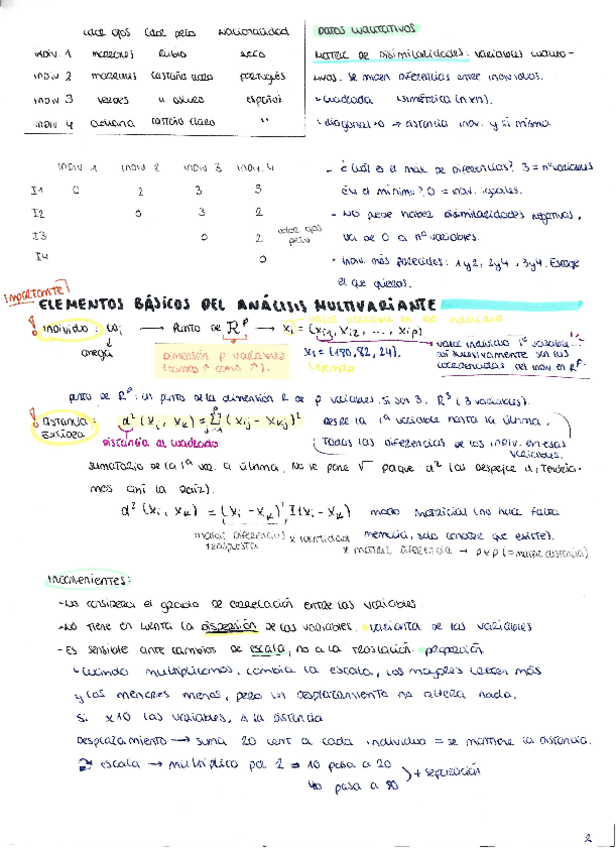 color ojos color pelo nacionalidad
Indiv. 1 marrones Rubio
Indiv 2 marrones castaño portugués
Indiv 3 verdes español
Indiv 4 castaño claro "
DATOS CUALITATIVOS
MATRIZ DE DISIMILARIDADES: variables cualita-
tivas. Se miden diferencias entre individuos.
cuadrada simétrica (nxn).
diagonal = 0 → distancia indiv. y sí mismo
Indiv 1 Indiv 2 Indiv 3 Indiv. 4
I1 0 2 3 3
I2 0 3 2
I3 0 2 color ojos
pelo
I4 0
- ¿cuál es el máx de diferencias? 3 = nº variables
¿y el mínimo? 0 = indiv. iguales.
- No puede haber disimilaridades negativas,
va de 0 a nº variables.
- Indiv. más parecidos: 1 y 2, 2 y 4, 3 y 4. Escoge
el que quieras.
IMPORTANTE!
ELEMENTOS BÁSICOS DEL ANÁLISIS MULTIVARIANTE
! Individuo: ωi → Punto de R^p → xi = (xi1, xi2, ..., xip)
omega
dimensión p variables
xi = (180, 82, 24).
ejemplo
valor individuo 1ª variable...
así sucesivamente son las
coordenadas del indiv. en R^p.
punto de R^p: un punto de la dimensión R de p variables. Si son 3, R^3 (3 variables).
! Distancia euclídea: d²(xi, xk) = Σ (xij - xkj)² desde la 1ª variable hasta la última,
distancia al cuadrado
Todas las diferencias de los indiv. en esas
variables.
sumatorio de la 1ª var. a última. No se pone √ porque d² (al despejar d, tendría-
mos aní la raíz).
d²(xi, xk) = (xi - xk)' I (xi - xk) modo matricial (no hace falta
matriz diferencias
traspuesta
x identidad
memoria, solo conocer que existe).
x matriz diferencia → pxp (= matriz distancia)
Inconvenientes:
- No considera el grado de correlación entre las variables.
- No tiene en cuenta la dispersión de las variables. varianza de las variables
- Es sensible ante cambios de escala, no a la traslación. proporción
Cuando multiplicamos, cambia la escala, los mayores crecen más
y los menores menos, pero un desplazamiento no altera nada.
Si x10 las variables, Δ la distancia
Desplazamiento → suma 20 cent a cada individuo = se mantiene la distancia.
escala → multiplico por 2 = 10 pasa a 20
40 pasa a 80
+ separación
2